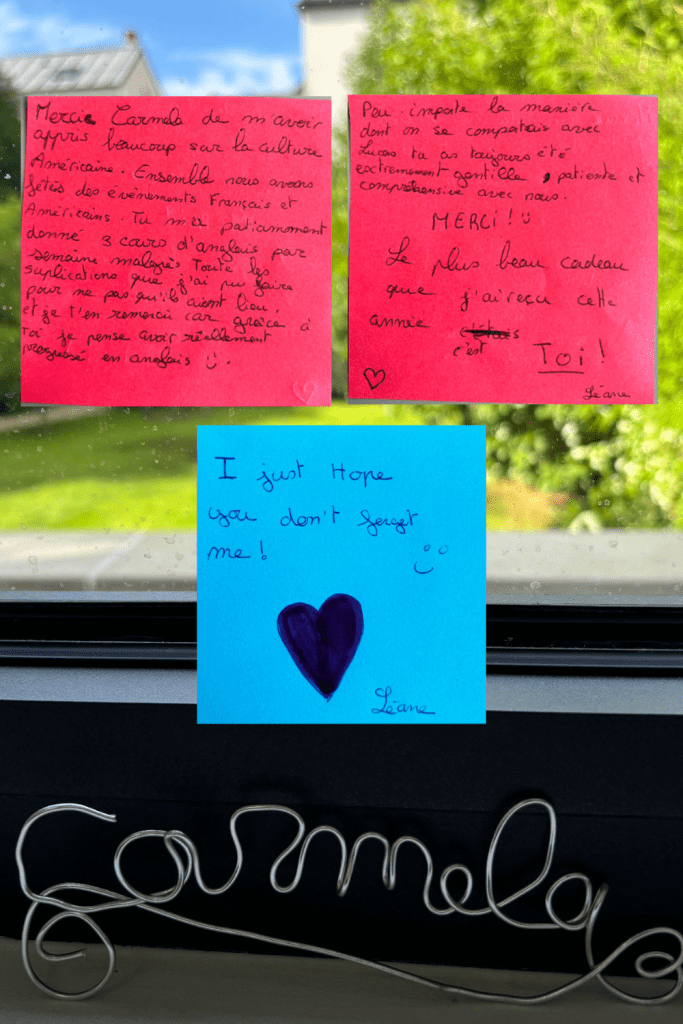 Mercie Carmela de m'avoir
appris beaucoup sur la culture
Américaine. Ensemble nous avons
fêtés des événements Français et
Américains. Tu m'as patiamment
donné 3 cours d'anglais par
semaine malgrès Toute les
suplications que j'ai pu faire
pour ne pas qu'ils aient lieu,
et je t'en remercie car grâce à
Toi je pense avoir réellement
progressé en anglais
Peu importe la manière
dont on se comportais avec
Lucas tu as toujours été
extremement gentille, patiente et
compréhensive avec nous.
MERCI!
Le plus beau cadeau
que j'ai reçu cette
année c'étais
c'est Toi!
Léane
I just Hope
you don't forget
me!
Léane
Carmela